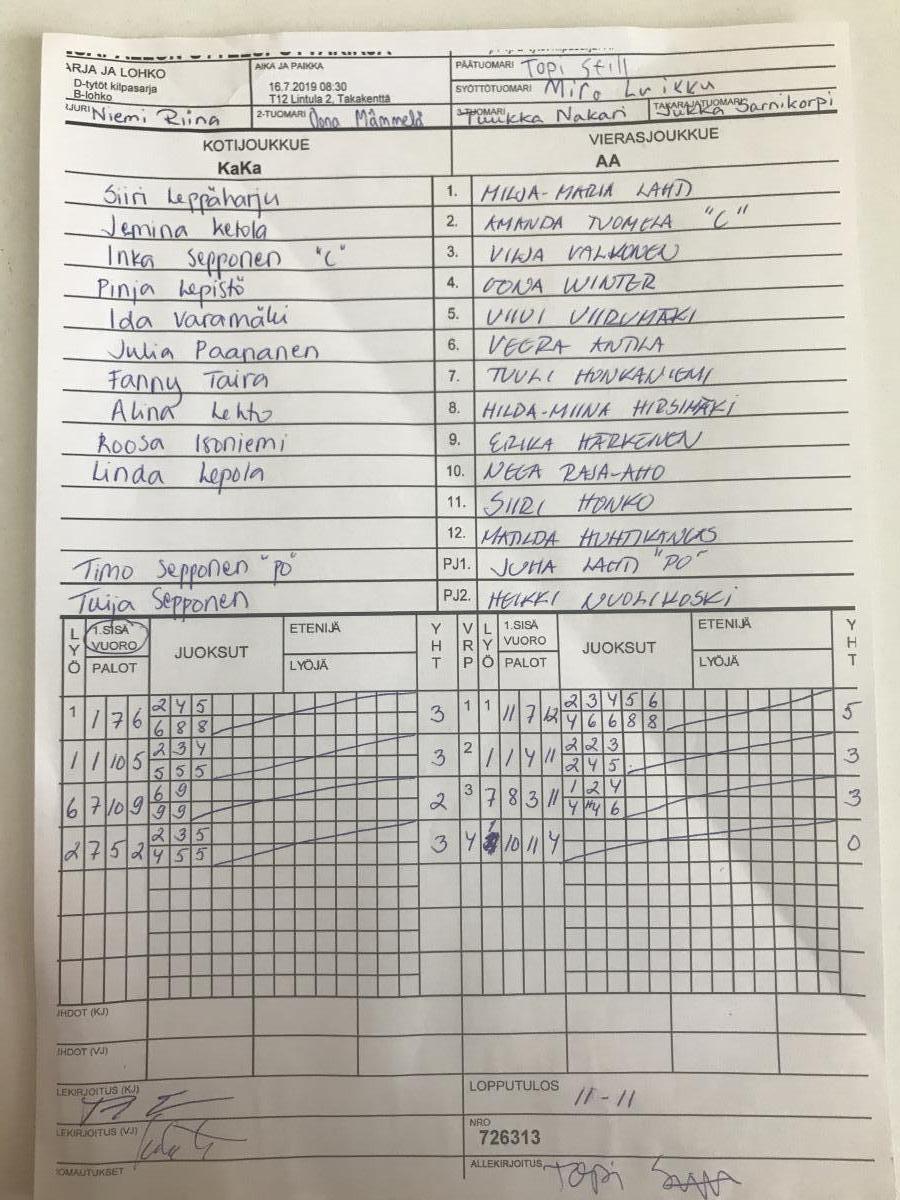 ARJA JA LOHKO
D-tytöt kilpasarja
B-lohko
AIKA JA PAIKKA
16.7.2019 08:30
T12 Lintula 2, Takakenttä
PÄÄTUOMARI Topi Still
SYÖTTÖTUOMARI Miro Luikku
JURI Niemi Riina 2-TUOMARI Oona Mämmelä 3-TUOMARI Tuukka Nakari TAKARAJATUOMARI Jukka Sarnikorpi
KOTIJOUKKUE VIERASJOUKKUE
KaKa AA
Siiri Leppäharju 1. MILJA-MARIA LAHD
Jemina Ketola 2. AMANDA TUOMELA "C"
Inka Sepponen "C" 3. VILJA VALKONEN
Pinja Lepistö 4. OONA WINTER
Ida Varamäki 5. VIIVI VIIRUMÄKI
Julia Paananen 6. VEERA ANTILA
Fanny Taira 7. TUULI HONKANIEMI
Alina Lehto 8. HILDA-MIINA HIRSIMÄKI
Roosa Isoniemi 9. ERIKA HÄRKÖNEN
Linda Lepola 10. NEEA RAJA-AHO
11. SIIRI HONKO
12. MATILDA HUHTIKANGAS
Timo Sepponen "PO" PJ1. JUHA LAHD "PO"
Tuija Sepponen PJ2. HEIKKI NUOLIKOSKI
LYÖ 1.SISÄ VUORO PALOT JUOKSUT ETENIJÄ LYÖJÄ YHT VRP LYÖ 1.SISÄ VUORO PALOT JUOKSUT ETENIJÄ LYÖJÄ YHT
2 4 5 2 3 4 5 6
1 1 7 6 3 1 1 11 7 12 5
6 8 8 4 6 6 8 8
2 3 4 2 2 3
1 1 10 5 3 2 1 1 4 11 3
5 5 5 2 4 5
6 9 1 2 4
6 7 10 9 2 3 7 8 3 11 3
9 9 4 4 6
2 3 5
2 7 5 2 3 4 10 11 4 0
4 5 5
HDOT (KJ)
HDOT (VJ)
LEKIRJOITUS (KJ) LOPPUTULOS 11-11
LEKIRJOITUS (VJ) NRO
726313
OMAUTUKSET ALLEKIRJOITUS Topi